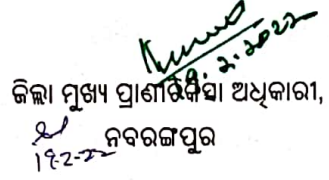 19.2.2022
ଜିଲ୍ଲା ମୁଖ୍ୟ ପ୍ରାଣୀଚିକିତ୍ସା ଅଧିକାରୀ,
19-2-22 ନବରଙ୍ଗପୁର